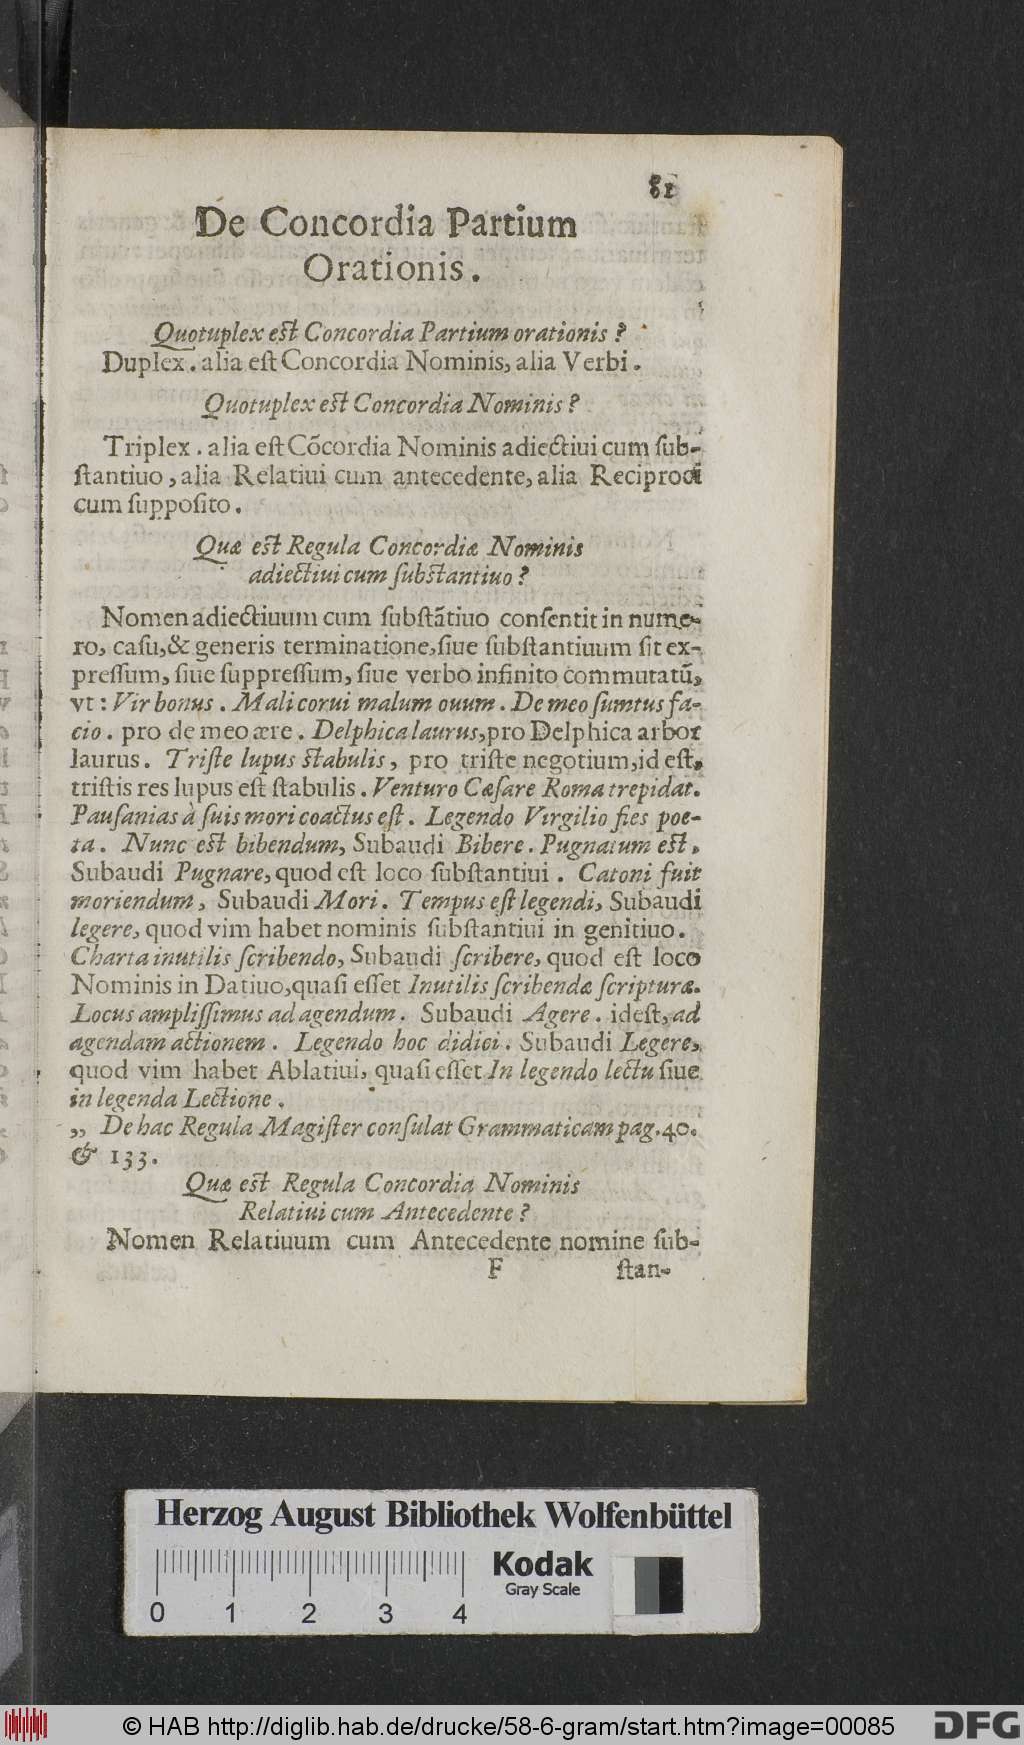 81
De Concordia Partium
Orationis.
Quotuplex eſt Concordia Partium orationis?
Duplex. alia eſt Concordia Nominis, alia Verbi.
Quotuplex eſt Concordia Nominis?
Triplex. alia eſt Cõcordia Nominis adiectiui cum ſub-
ſtantiuo, alia Relatiui cum antecedente, alia Reciproci
cum ſuppoſito.
Quæ eſt Regula Concordiæ Nominis
adiectiui cum ſubſtantiuo?
Nomen adiectiuum cum ſubſtãtiuo conſentit in nume-
ro, caſu, & generis terminatione, ſiue ſubſtantiuum ſit ex-
preſſum, ſiue ſuppreſſum, ſiue verbo infinito commutatũ,
vt: Vir bonus. Mali corui malum ouum. De meo ſumtus fa-
cio. pro de meo ære. Delphica laurus, pro Delphica arbor
laurus. Triſte lupus ſtabulis, pro triſte negotium, id eſt,
triſtis res lupus eſt ſtabulis. Venturo Cæſare Roma trepidat.
Pauſanias à ſuis mori coactus eſt. Legendo Virgilio fies poe-
ta. Nunc eſt bibendum, Subaudi Bibere. Pugnatum eſt,
Subaudi Pugnare, quod eſt loco ſubſtantiui. Catoni fuit
moriendum, Subaudi Mori. Tempus eſt legendi, Subaudi
legere, quod vim habet nominis ſubſtantiui in genitiuo.
Charta inutilis ſcribendo, Subaudi ſcribere, quod eſt loco
Nominis in Datiuo, quaſi eſſet Inutilis ſcribendæ ſcripturæ.
Locus ampliſſimus ad agendum. Subaudi Agere. ideſt, ad
agendam actionem. Legendo hoc didici. Subaudi Legere,
quod vim habet Ablatiui, quaſi eſſet In legendo lectu ſiue
in legenda Lectione.
„ De hac Regula Magiſter conſulat Grammaticam pag. 40.
& 133.
Quæ eſt Regula Concordia Nominis
Relatiui cum Antecedente?
Nomen Relatiuum cum Antecedente nomine ſub-
F ſtan-
Herzog August Bibliothek Wolfenbüttel
Kodak
Gray Scale
0 1 2 3 4
© HAB http://diglib.hab.de/drucke/58-6-gram/start.htm?image=00085
DFG